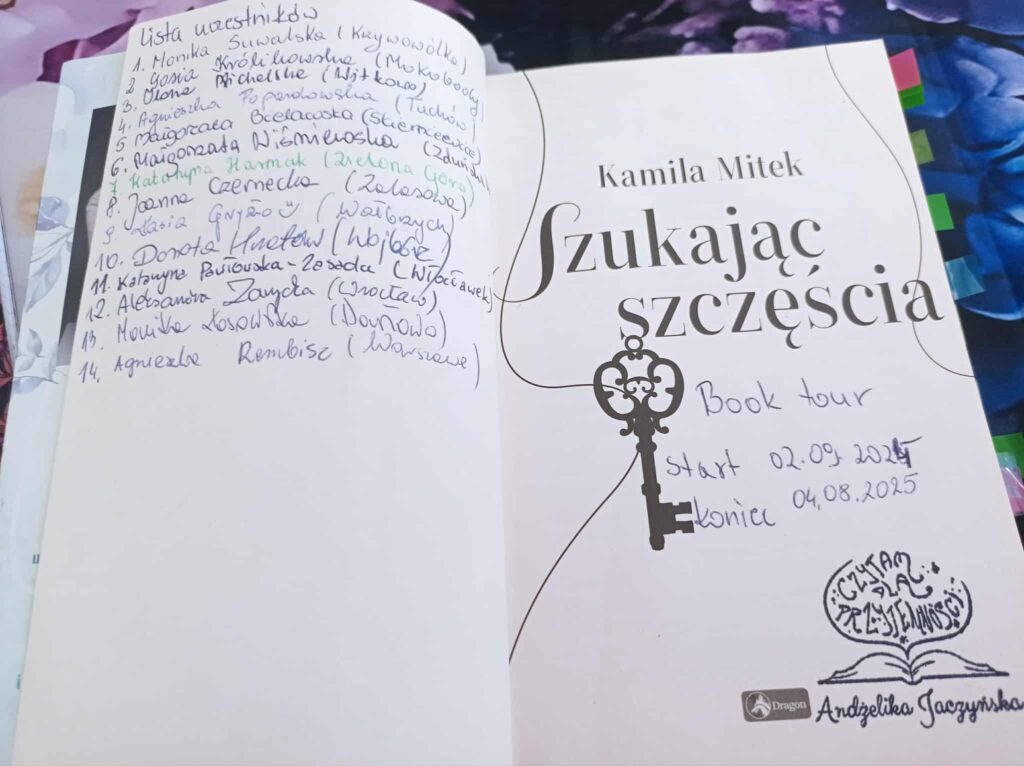 Lista uczestników
1. Monika Suwalska (Krzywowólka)
2. Gosia Królikowska (Mokobody)
3. Ilona Michelska (Witkowo)
4. Agnieszka Popardowska (Tuchów)
5. Małgorzata Bielawska (Skierniewice)
6. Małgorzata Wiśniewska
7. Katarzyna Harmak (Zielona Góra)
8. Joanna Czernecka (Zalasowa)
9. Kasia Gryzło (Wałbrzych)
10. Dorota (Wojbórz)
11. Katarzyna Pawłowska-Zasada (Włocławek)
12. Aleksandra Zawęcka (Wrocław)
13. Monika Łosowska (Darnowo)
14. Agnieszka Rembisz (Warszawa)
Kamila Mitek
Szukając
szczęścia
Book tour
Start 02.09.2024
Koniec 04.08.2025
CZYTAM
DLA
PRZYJEMNOŚCI
Dragon
Andżelika Jaczyńska